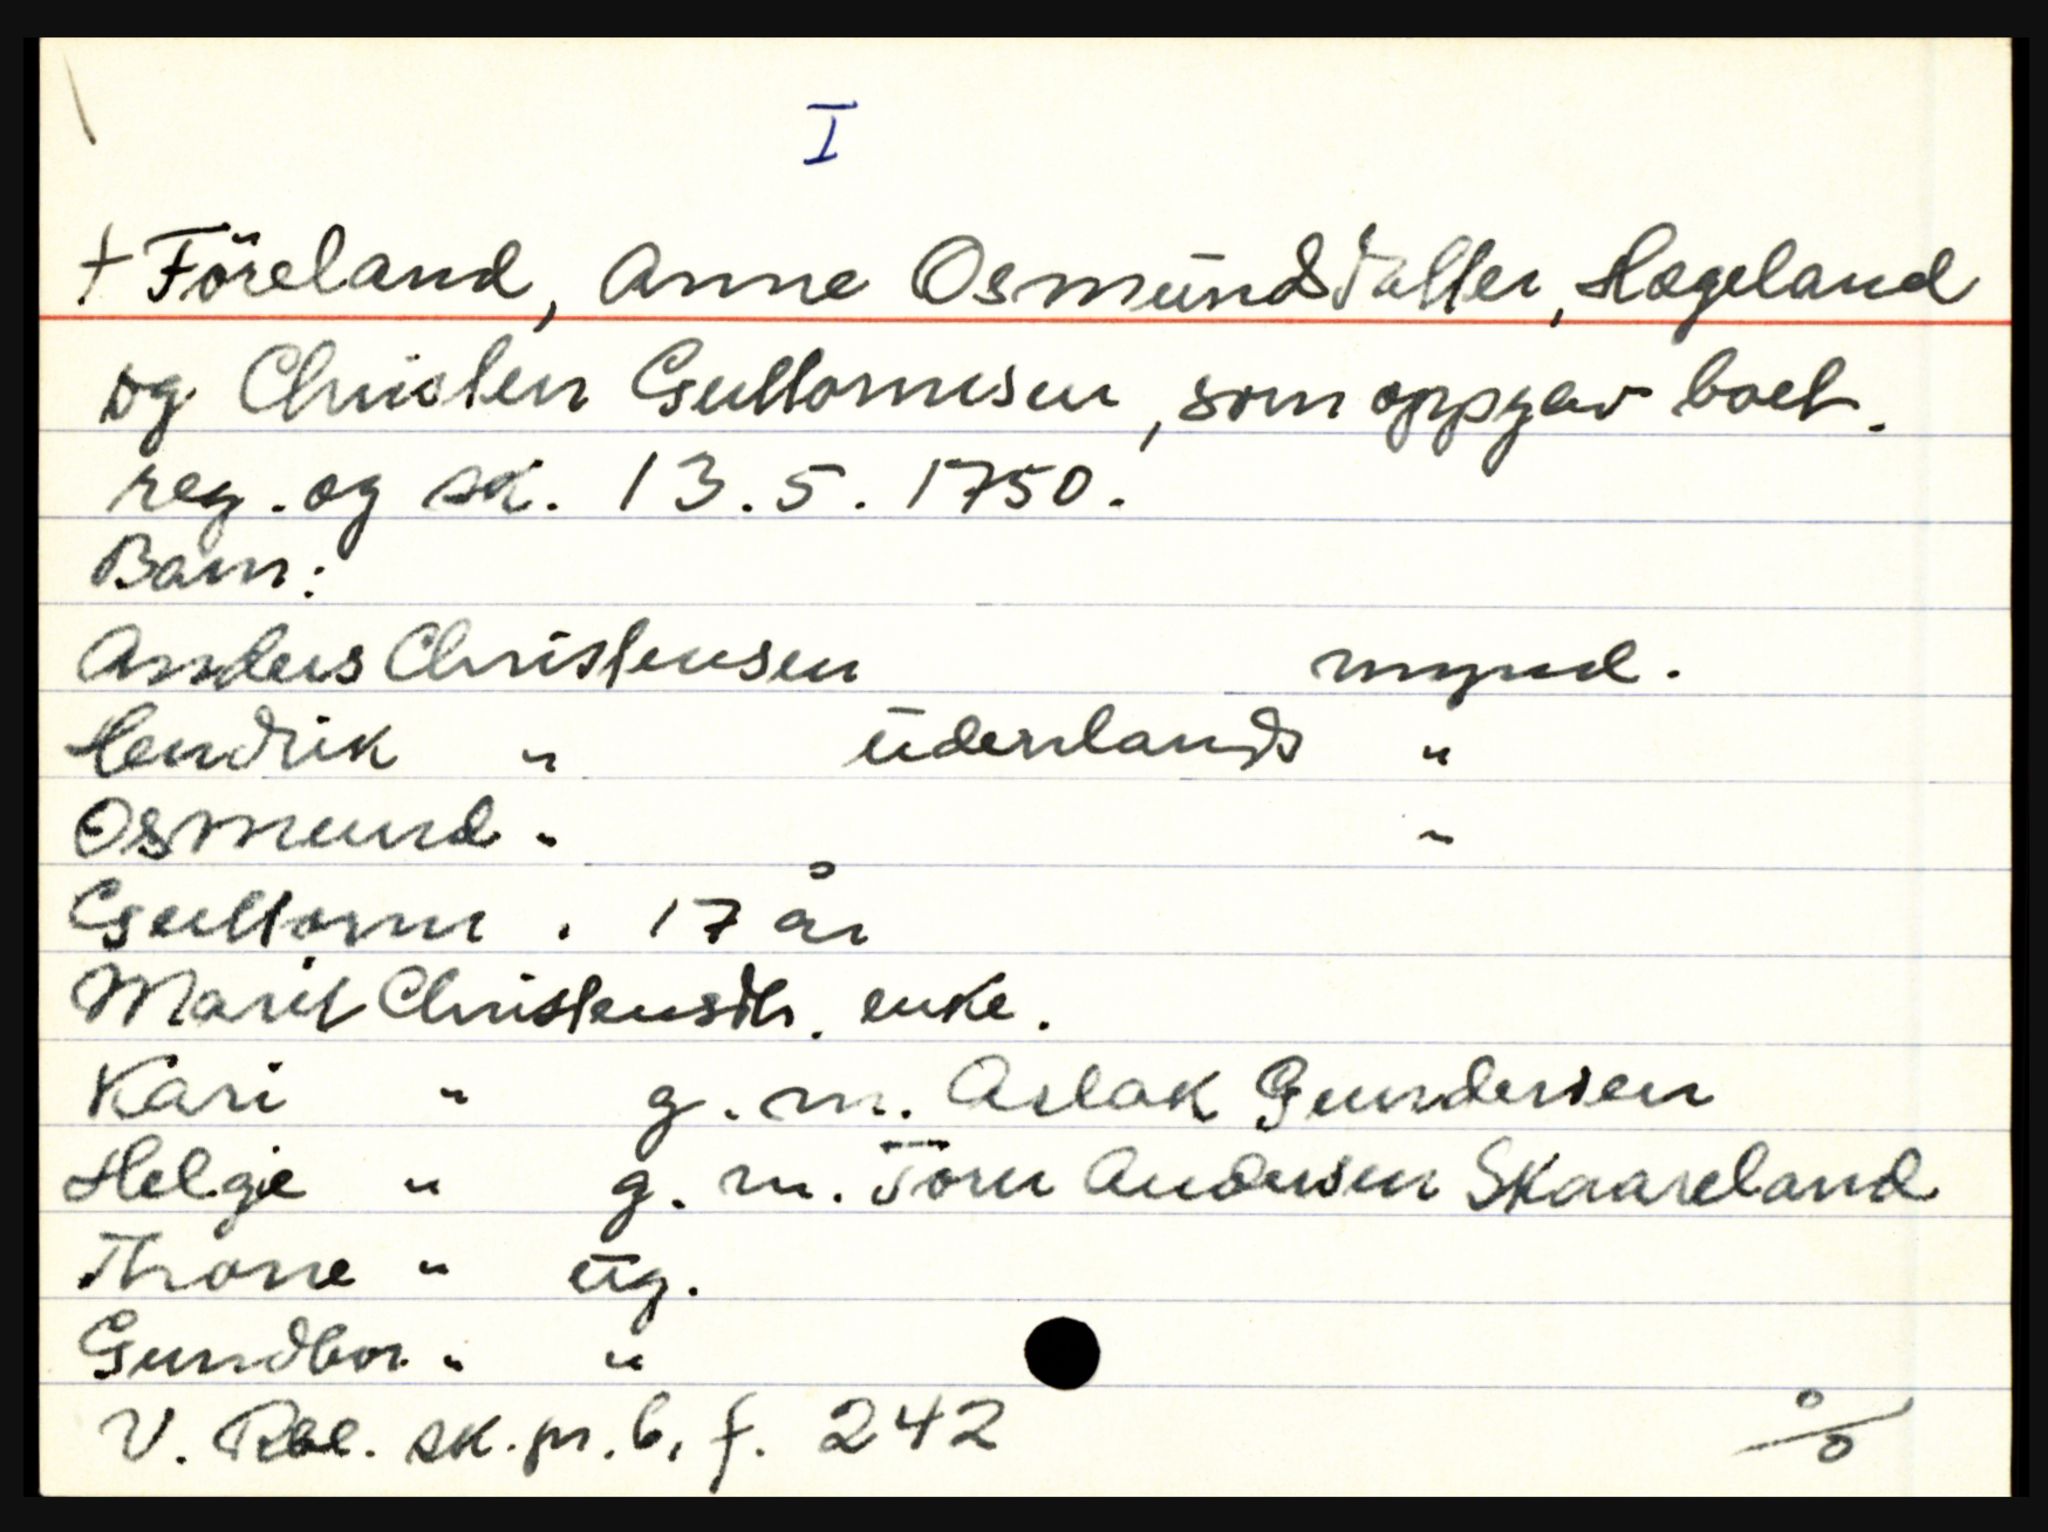 I
+ Föreland, Anne Osmundsdatter, Hægeland
og Christen Guttormsen, som oppgav boet.
reg. og sk. 13.5. 1750.
Barn:
Anders Christensen mynd.
Hendrik " udenlands "
Osmund " "
Guttorm . 17 år
Marit Christensdtr. enke.
Kari " g. m. Aslak Gundersen
Helgie " g. m. Torn Andersen Skaareland
Throne " ug.
Gundbor. " "
V. Rbl. sk. pr. 6, f. 242
%